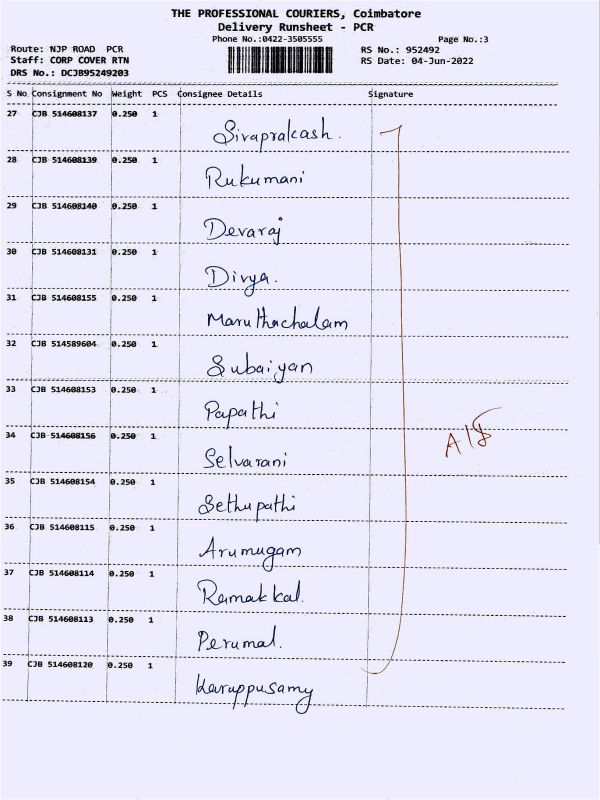 THE PROFESSIONAL COURIERS, Coimbatore
Delivery Runsheet - PCR
Phone No.:0422-3505555
Page No.:3
Route: NJP ROAD PCR
RS No.: 952492
Staff: CORP COVER RTN
RS Date: 04-Jun-2022
DRS No.: DCJB95249203
S No Consignment No Weight PCS Consignee Details Signature
27 CJB 514608137 0.250 1
Sivaprakash.
28 CJB 514608139 0.250 1
Rukumani
29 CJB 514608140 0.250 1
Devaraj
30 CJB 514608131 0.250 1
Divya.
31 CJB 514608155 0.250 1
Maruthachalam
32 CJB 514589604 0.250 1
Subaiyan
33 CJB 514608153 0.250 1
Papathi
34 CJB 514608156 0.250 1
Selvarani
35 CJB 514608154 0.250 1
Sethupathi
36 CJB 514608115 0.250 1
Arumugam
37 CJB 514608114 0.250 1
Ramakkal.
38 CJB 514608113 0.250 1
Perumal.
39 CJB 514608120 0.250 1
Karuppusamy